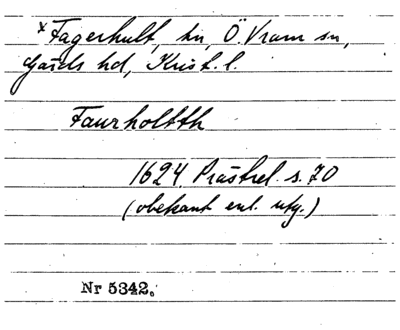 *Fagerhult, hn, Ö. Vram sn,
Gärds hd, Krist. l.
Faurholtth
1624 Prästrel. s. 70
(obekant enl. utg.)
Nr 5342.